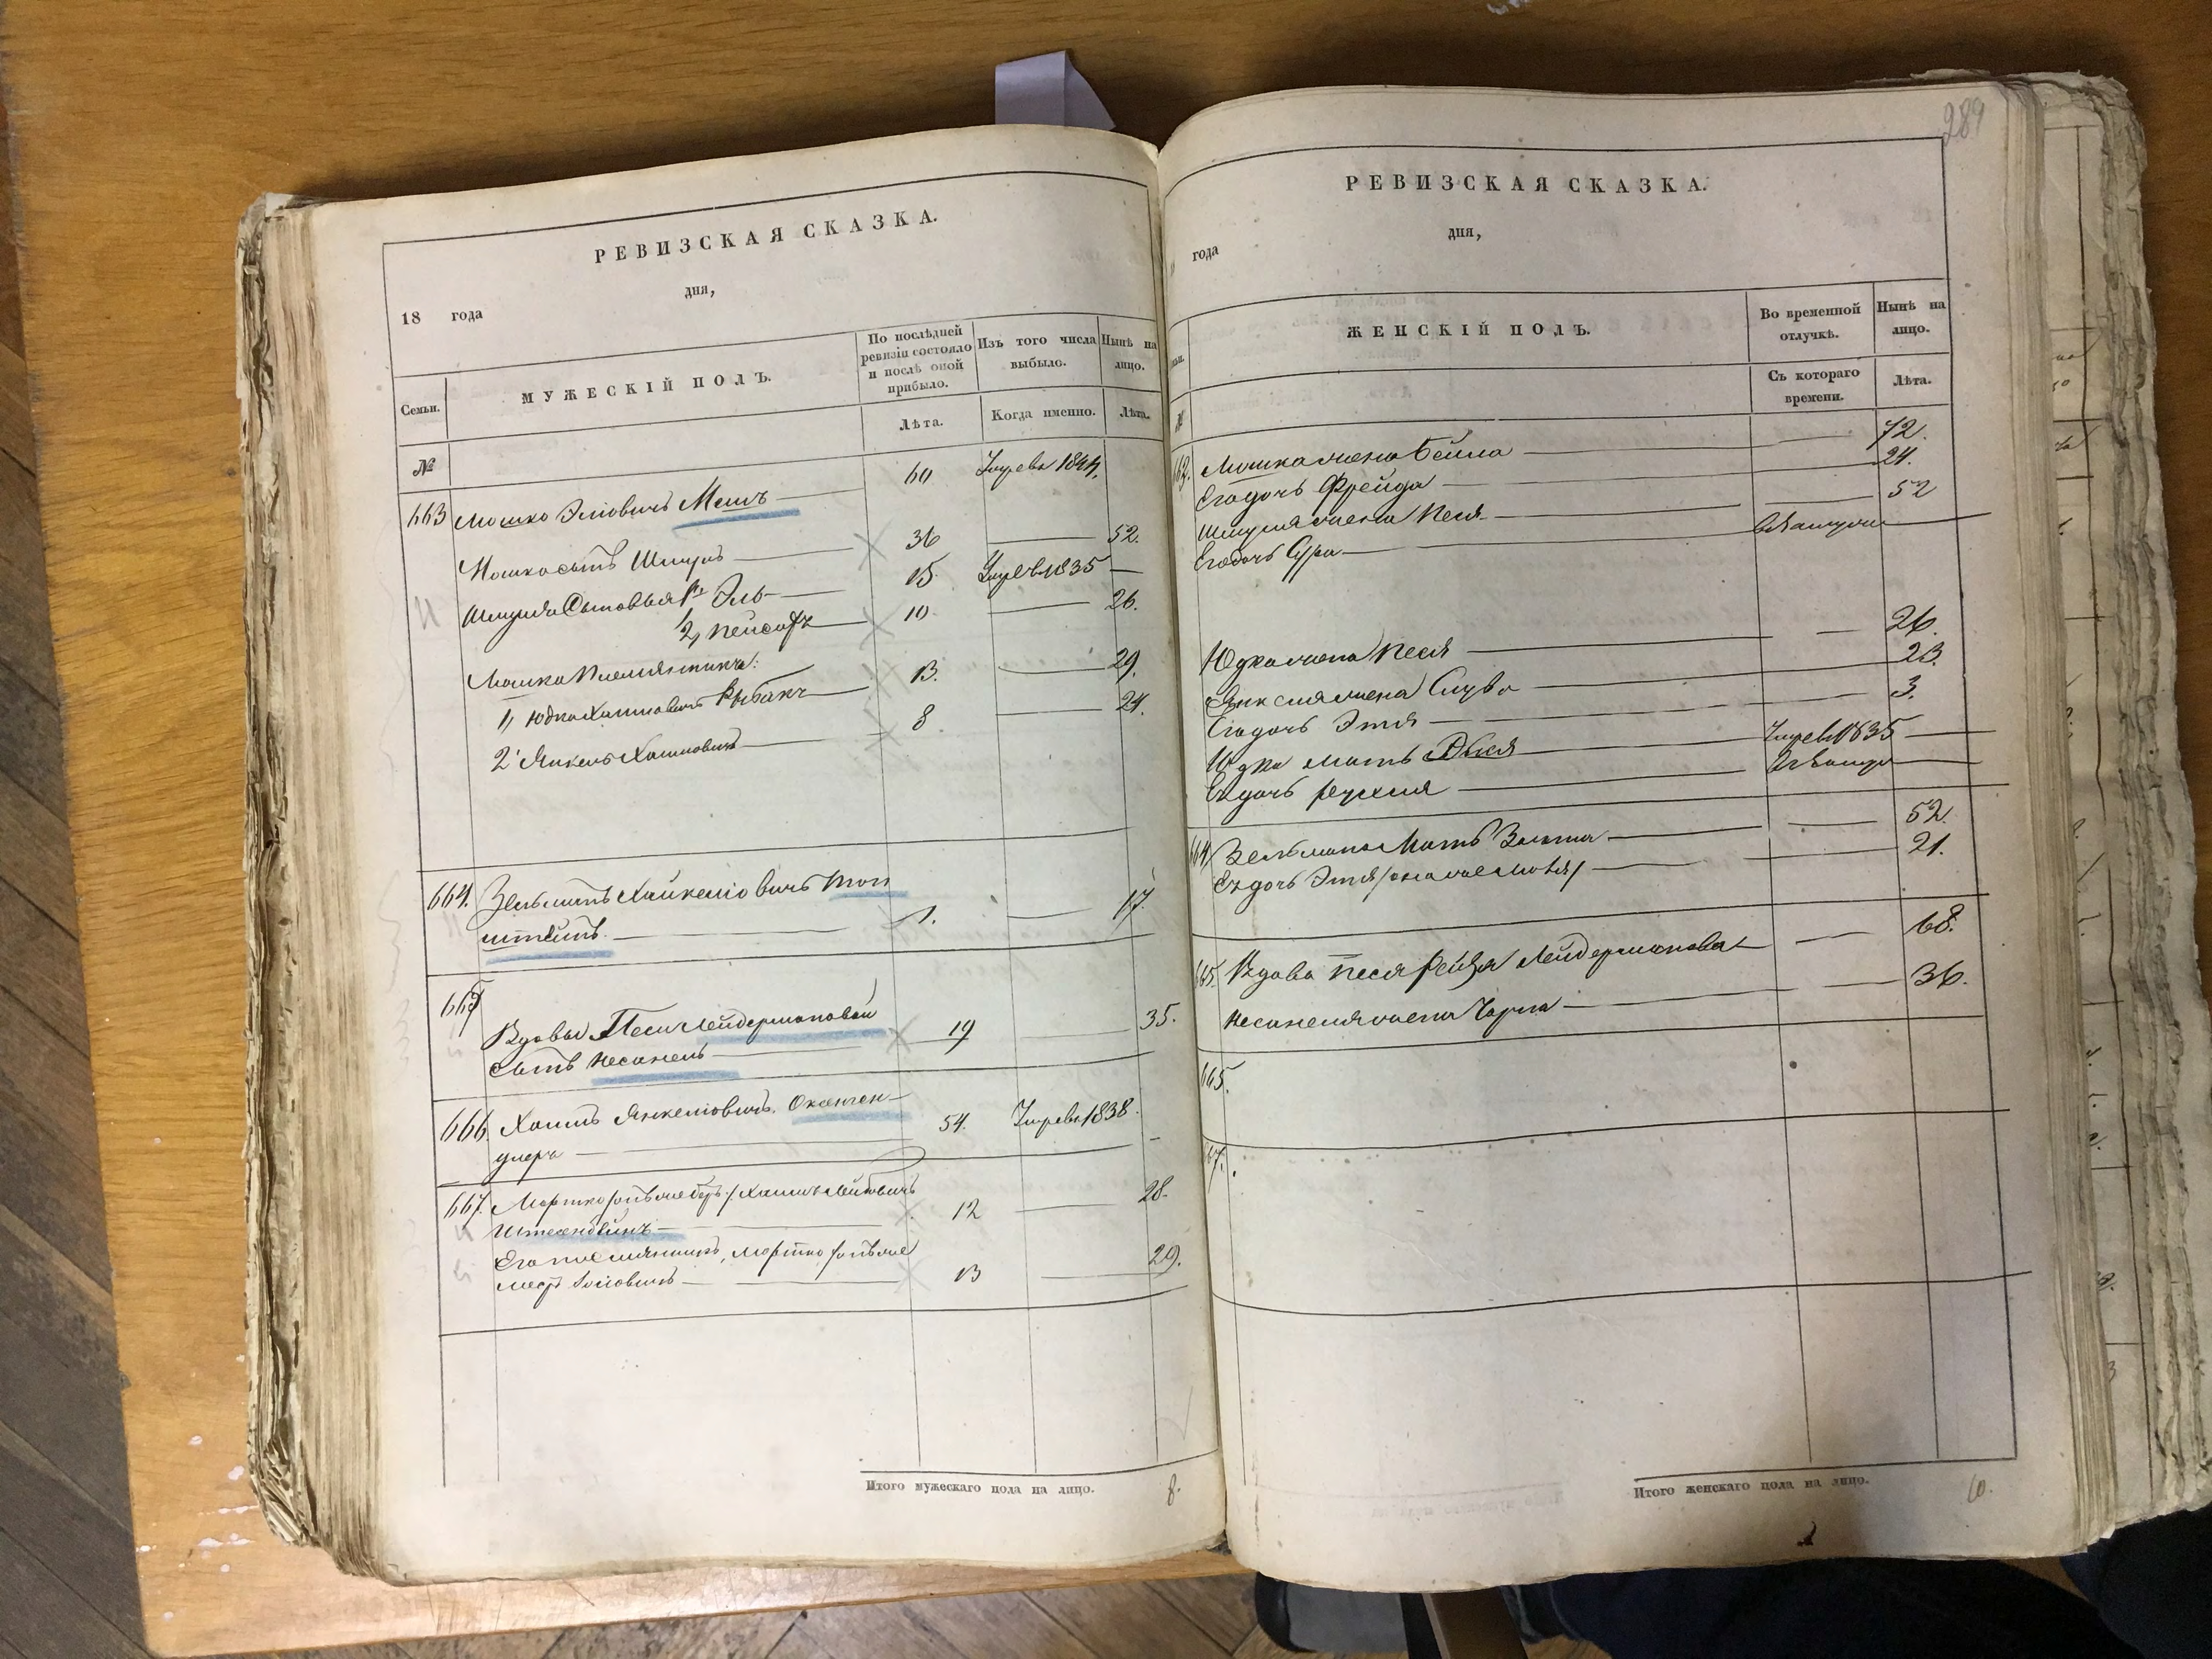 РЕВИЗСКАЯ СКАЗКА.
18 года
дня,
Семьи.
МУЖЕСКІЙ ПОЛЪ.
По послѣдней ревизіи состояло и послѣ оной прибыло.
Изъ того числа выбыло.
Нынѣ на лицо.
Лѣта.
Когда именно.
Лѣта.
№
663 Мошко Эліовичъ Мешъ 60 Умре въ 1844
Мошка сынъ Шмуль 36 52.
Шмуля Сыновья 1й Эль 15. Умре въ 1835
2, Пейсахъ 10 26.
Мошка Племянники:
1, Юдка Хаимовичъ Рыбакъ 13. 29.
2 Янкель Хаимовичъ 8 24.
664. Зельманъ Хайкеліовичъ
штейнъ. 1. 17.
665
Вдовы Песи Лейдермановой
сынъ Несанель 19 35.
666 Хаимъ Янкеліовичъ
54. Умре въ 1838.
667. Мортко Хаимъ Лейбовичъ 12 28.
Его племянникъ, Мортко
13 29.
Итого мужескаго пола на лицо. 8.
289
РЕВИЗСКАЯ СКАЗКА.
года
дня,
ЖЕНСКІЙ ПОЛЪ.
Во временной отлучкѣ.
Нынѣ на лицо.
Съ котораго времени.
Лѣта.
№
663. Мошка жена Бейла 72.
Его дочь Фрейда 24.
Шмуля жена Песя 52
Его дочь Сура
Юдка жена Песя 26.
Янкеля жена Слува 23.
Его дочь Этя 3.
Юдка мать Умре въ 1835
Ея дочь Рухля
664 Зельмана Мать Злата 52.
Ея дочь Этя 21.
665. Вдова Песя Рейзя Лейдерманова 68.
Несанеля жена Чарна 36.
665.
67.
Итого женскаго пола на лицо. 10.